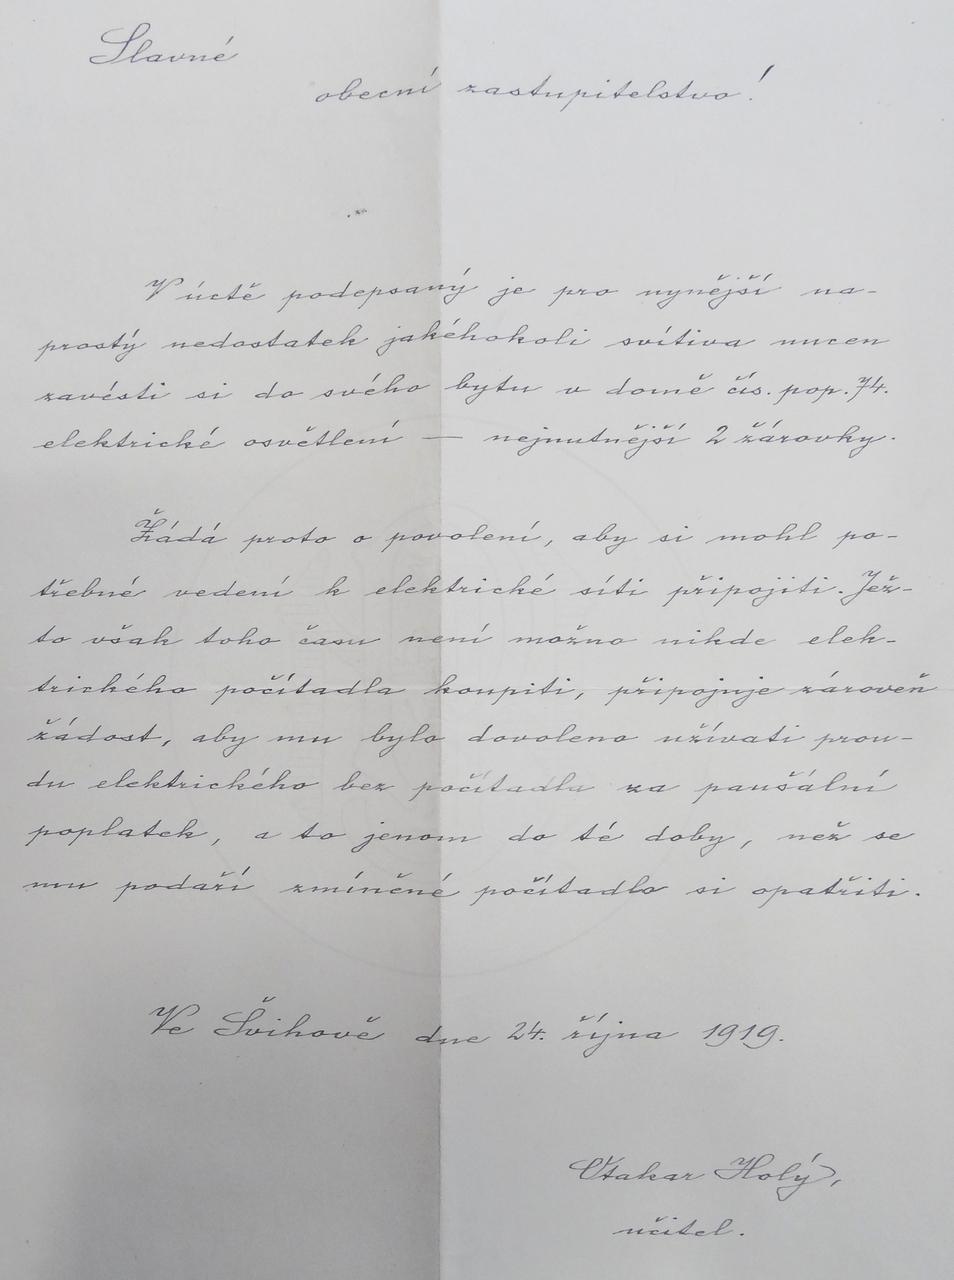 Slavné
obecní zastupitelstvo!
V úctě podepsaný je pro nynější na-
prostý nedostatek jakéhokoli svítiva nucen
zavésti si do svého bytu v domě čís. pop. 74.
elektrické osvětlení — nejnutnější 2 žárovky.
Žádá proto o povolení, aby si mohl po-
třebné vedení k elektrické síti připojiti. Jež-
to však toho času není možno nikde elek-
trického počítadla koupiti, připojuje zároveň
žádost, aby mu bylo dovoleno užívati prou-
du elektrického bez počítadla za paušální
poplatek, a to jenom do té doby, než se
mu podaří zmíněné počítadlo si opatřiti.
Ve Švihově dne 24. října 1919.
Otakar Holý,
učitel.